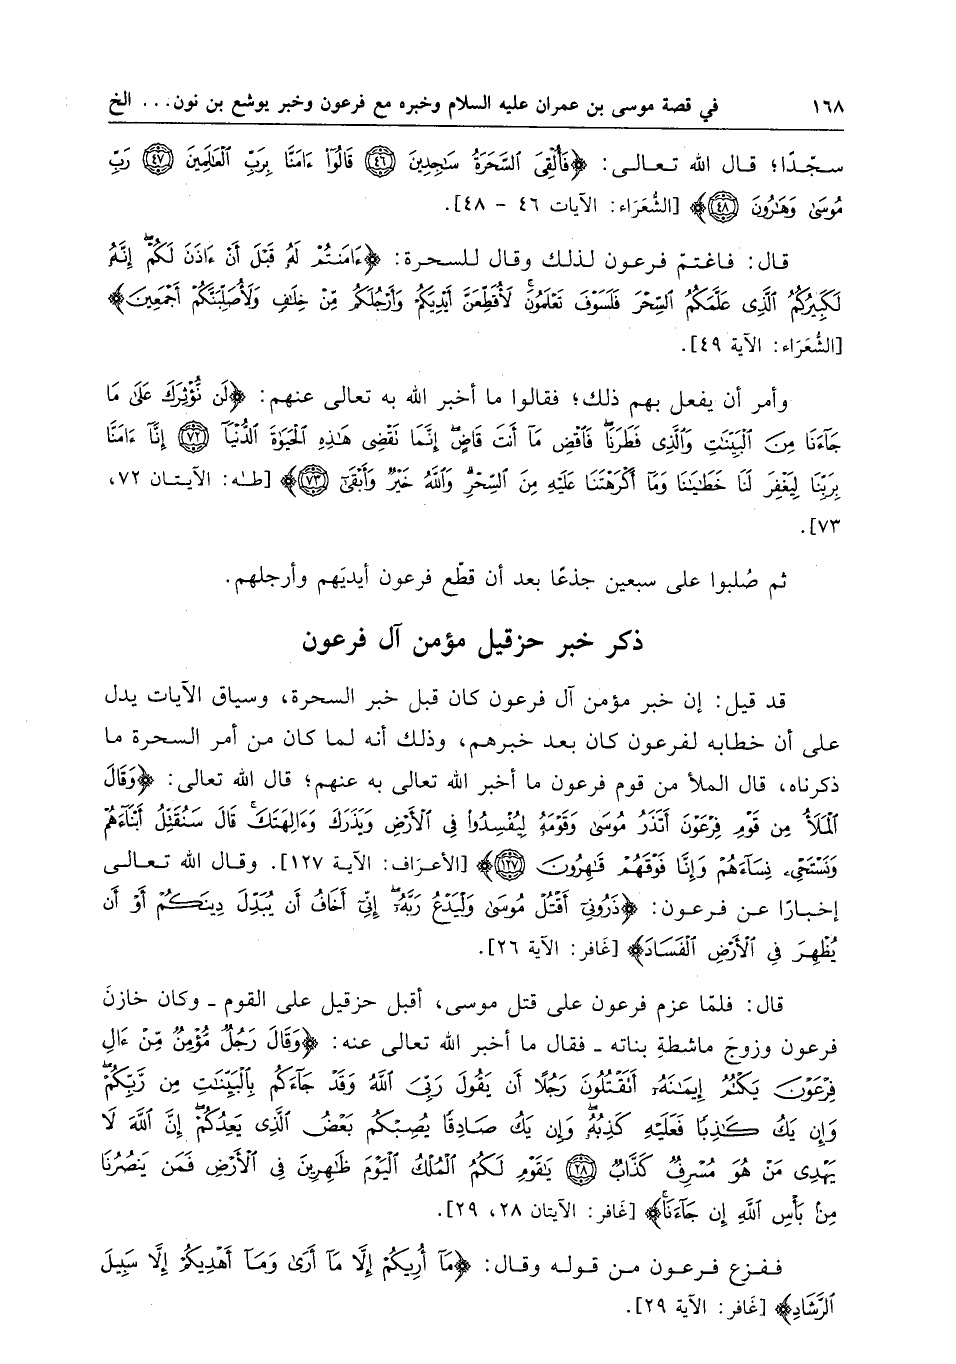 ١٦٨ في قصة موسى بن عمران عليه السلام وخبره مع فرعون وخبر يوشع بن نون... الخ
سجّدًا؛ قال الله تعالى: ﴿فَأُلْقِيَ ٱلسَّحَرَةُ سَٰجِدِينَ ﴿٤٦﴾ قَالُوٓا۟ ءَامَنَّا بِرَبِّ ٱلْعَٰلَمِينَ ﴿٤٧﴾ رَبِّ
مُوسَىٰ وَهَٰرُونَ ﴿٤٨﴾﴾ [الشُّعَرَاء: الآيات ٤٦ - ٤٨].
قال: فاغتمّ فرعون لذلك وقال للسحرة: ﴿ءَامَنتُمْ لَهُۥ قَبْلَ أَنْ ءَاذَنَ لَكُمْ ۖ إِنَّهُۥ
لَكَبِيرُكُمُ ٱلَّذِى عَلَّمَكُمُ ٱلسِّحْرَ فَلَسَوْفَ تَعْلَمُونَ ۚ لَأُقَطِّعَنَّ أَيْدِيَكُمْ وَأَرْجُلَكُم مِّنْ خِلَٰفٍ وَلَأُصَلِّبَنَّكُمْ أَجْمَعِينَ﴾
[الشُّعَرَاء: الآية ٤٩].
وأمر أن يفعل بهم ذلك؛ فقالوا ما أخبر الله به تعالى عنهم: ﴿لَن نُّؤْثِرَكَ عَلَىٰ مَا
جَآءَنَا مِنَ ٱلْبَيِّنَٰتِ وَٱلَّذِى فَطَرَنَا ۖ فَٱقْضِ مَآ أَنتَ قَاضٍ ۖ إِنَّمَا تَقْضِى هَٰذِهِ ٱلْحَيَوٰةَ ٱلدُّنْيَآ ﴿٧٢﴾ إِنَّآ ءَامَنَّا
بِرَبِّنَا لِيَغْفِرَ لَنَا خَطَٰيَٰنَا وَمَآ أَكْرَهْتَنَا عَلَيْهِ مِنَ ٱلسِّحْرِ ۗ وَٱللَّهُ خَيْرٌ وَأَبْقَىٰٓ ﴿٧٣﴾﴾ [طـٰه: الآيتان ٧٢،
٧٣].
ثم صُلبوا على سبعين جذعًا بعد أن قطّع فرعون أيديَهم وأرجلهم.
ذكر خبر حزقيل مؤمن آل فرعون
قد قيل: إن خبر مؤمن آل فرعون كان قبل خبر السحرة، وسياق الآيات يدل
على أن خطابه لفرعون كان بعد خبرهم، وذلك أنه لما كان من أمر السحرة ما
ذكرناه، قال الملأ من قوم فرعون ما أخبر الله تعالى به عنهم؛ قال الله تعالى: ﴿وَقَالَ
ٱلْمَلَأُ مِن قَوْمِ فِرْعَوْنَ أَتَذَرُ مُوسَىٰ وَقَوْمَهُۥ لِيُفْسِدُوا۟ فِى ٱلْأَرْضِ وَيَذَرَكَ وَءَالِهَتَكَ ۚ قَالَ سَنُقَتِّلُ أَبْنَآءَهُمْ
وَنَسْتَحْىِۦ نِسَآءَهُمْ وَإِنَّا فَوْقَهُمْ قَٰهِرُونَ ﴿١٢٧﴾﴾ [الأعرَاف: الآية ١٢٧]. وقال الله تعالى
إخبارًا عن فرعون: ﴿ذَرُونِىٓ أَقْتُلْ مُوسَىٰ وَلْيَدْعُ رَبَّهُۥٓ ۖ إِنِّىٓ أَخَافُ أَن يُبَدِّلَ دِينَكُمْ أَوْ أَن
يُظْهِرَ فِى ٱلْأَرْضِ ٱلْفَسَادَ﴾ [غَافر: الآية ٢٦].
قال: فلمّا عزم فرعون على قتل موسى، أقبل حزقيل على القوم ـ وكان خازنَ
فرعون وزوجَ ماشطةِ بناته ـ فقال ما أخبر الله تعالى عنه: ﴿وَقَالَ رَجُلٌ مُّؤْمِنٌ مِّنْ ءَالِ
فِرْعَوْنَ يَكْتُمُ إِيمَٰنَهُۥٓ أَتَقْتُلُونَ رَجُلًا أَن يَقُولَ رَبِّىَ ٱللَّهُ وَقَدْ جَآءَكُم بِٱلْبَيِّنَٰتِ مِن رَّبِّكُمْ ۖ
وَإِن يَكُ كَٰذِبًا فَعَلَيْهِ كَذِبُهُۥ ۖ وَإِن يَكُ صَادِقًا يُصِبْكُم بَعْضُ ٱلَّذِى يَعِدُكُمْ ۖ إِنَّ ٱللَّهَ لَا
يَهْدِى مَنْ هُوَ مُسْرِفٌ كَذَّابٌ ﴿٢٨﴾ يَٰقَوْمِ لَكُمُ ٱلْمُلْكُ ٱلْيَوْمَ ظَٰهِرِينَ فِى ٱلْأَرْضِ فَمَن يَنصُرُنَا
مِنۢ بَأْسِ ٱللَّهِ إِن جَآءَنَا ۚ﴾ [غَافر: الآيتان ٢٨، ٢٩].
ففزع فرعون من قوله وقال: ﴿مَآ أُرِيكُمْ إِلَّا مَآ أَرَىٰ وَمَآ أَهْدِيكُمْ إِلَّا سَبِيلَ
ٱلرَّشَادِ﴾ [غَافر: الآية ٢٩].